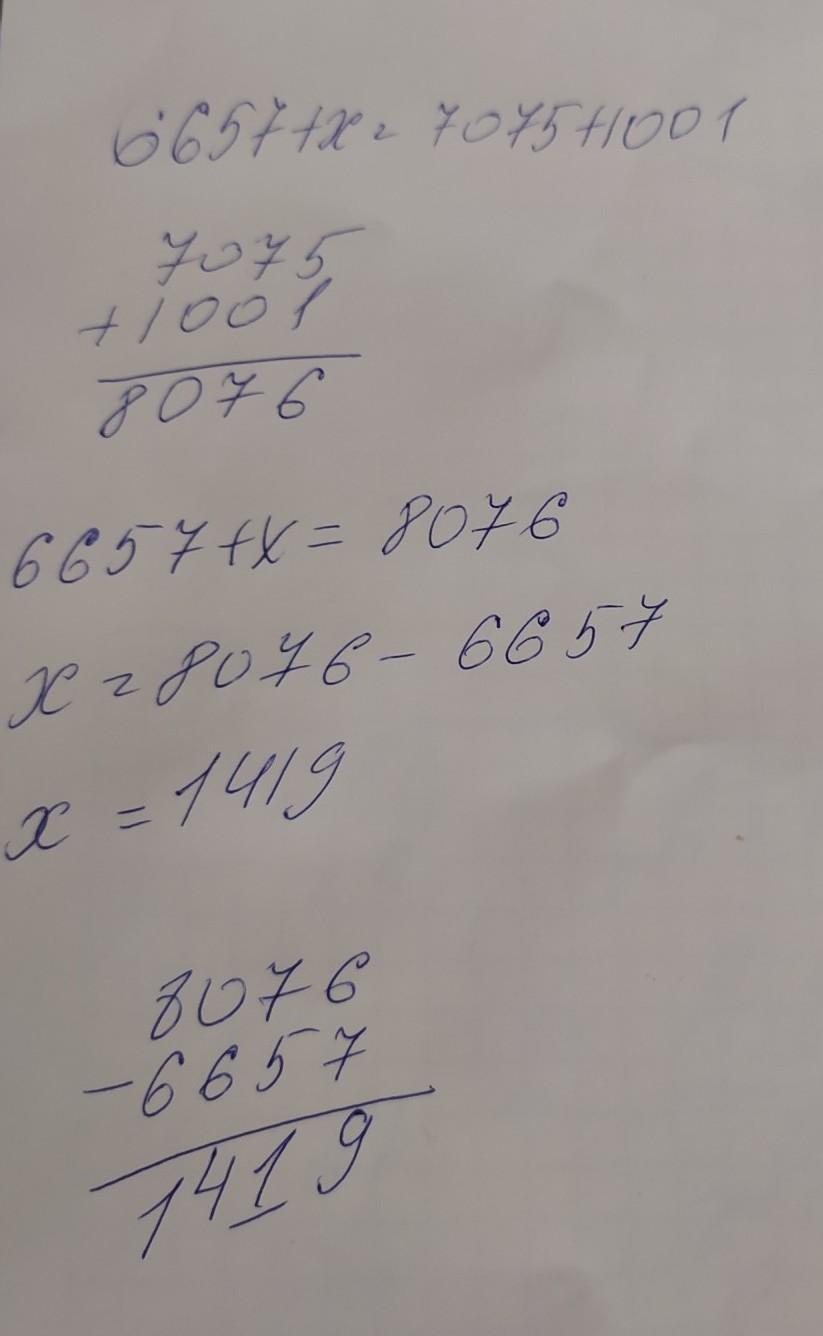 6657+x=7075+1001
7075
+1001
8076
6657+x=8076
x=8076-6657
x=1419
8076
-6657
1419